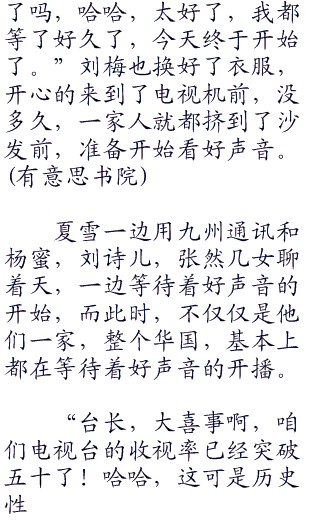 了吗，哈哈，太好了，我都
等了好久了，今天终于开始
了。”刘梅也换好了衣服，
开心的来到了电视机前，没
多久，一家人就都挤到了沙
发前，准备开始看好声音。
(有意思书院)
夏雪一边用九州通讯和
杨蜜，刘诗儿，张然几女聊
着天，一边等待着好声音的
开始，而此时，不仅仅是他
们一家，整个华国，基本上
都在等待着好声音的开播。
“台长，大喜事啊，咱
们电视台的收视率已经突破
五十了！哈哈，这可是历史
性